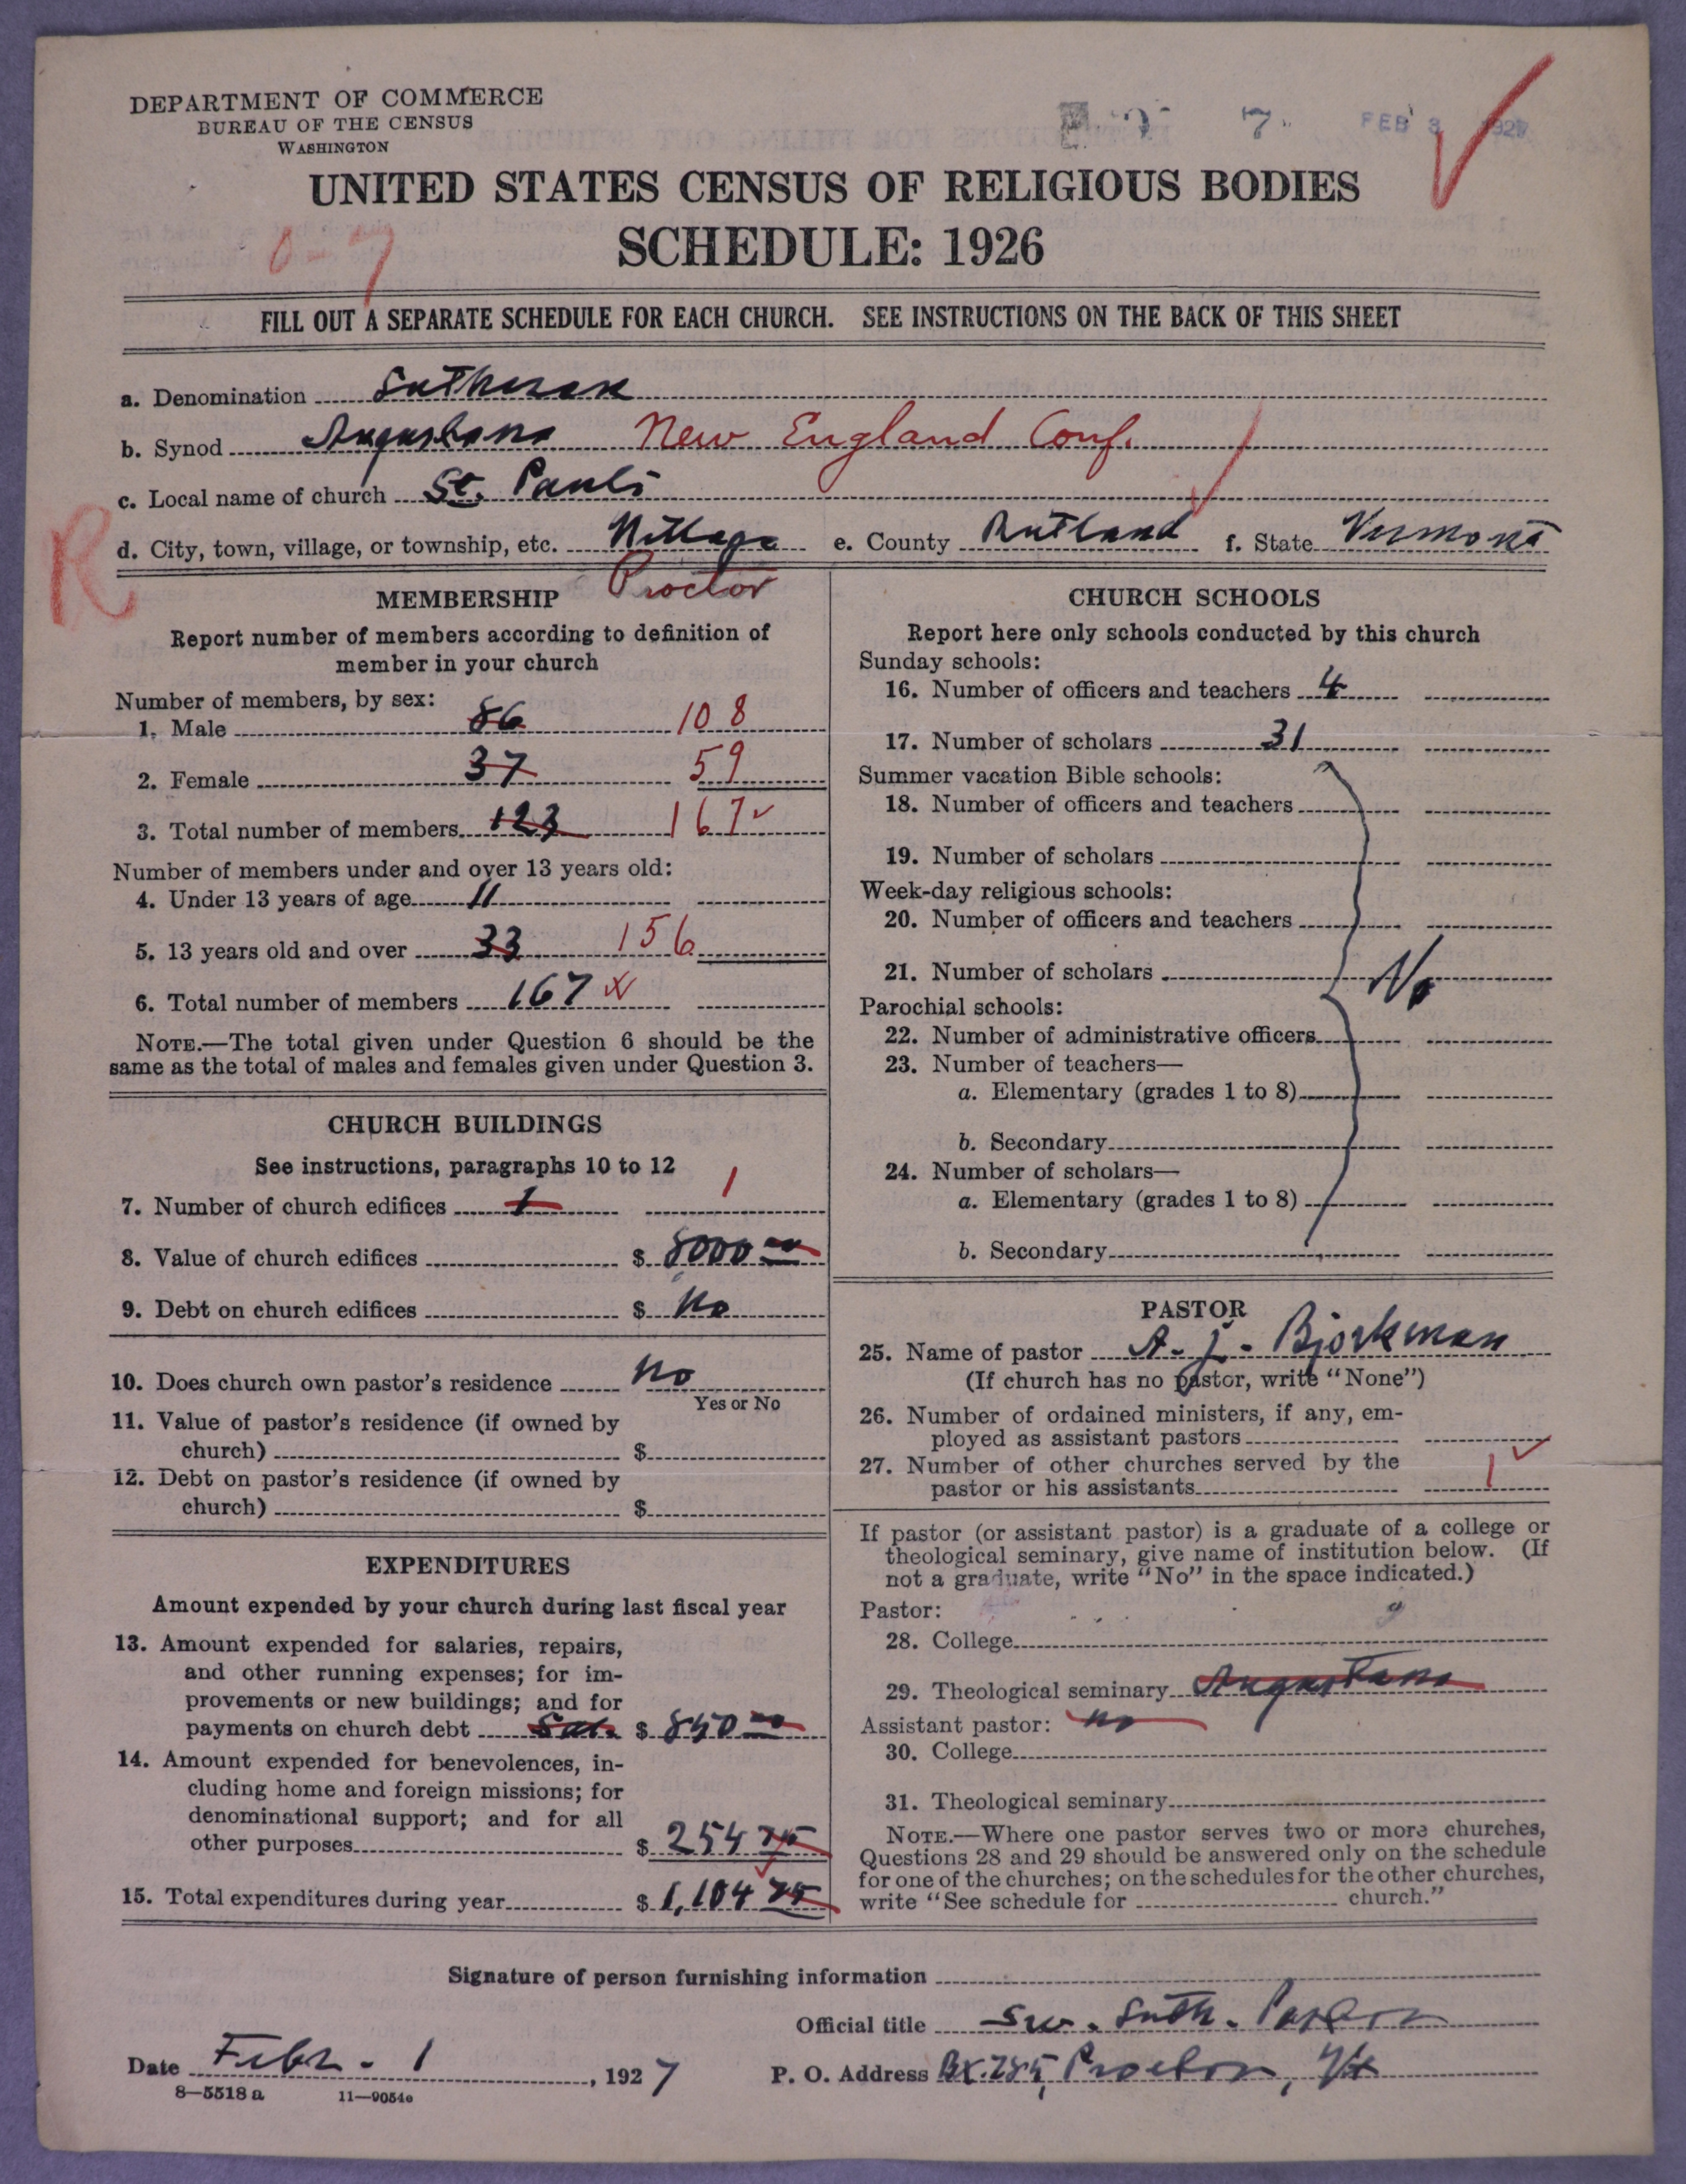 DEPARTMENT OF COMMERCE
BUREAU OF THE CENSUS
WASHINGTON
FEB 3 1927
UNITED STATES CENSUS OF RELIGIOUS BODIES
SCHEDULE: 1926
0-7
FILL OUT A SEPARATE SCHEDULE FOR EACH CHURCH. SEE INSTRUCTIONS ON THE BACK OF THIS SHEET
a. Denomination Lutheran
b. Synod Augustana New England Conf.
c. Local name of church St. Pauls
R
d. City, town, village, or township, etc. Village e. County Rutland f. State Vermont
Proctor
MEMBERSHIP
Report number of members according to definition of
member in your church
Number of members, by sex:
1. Male 86 108
2. Female 37 59
3. Total number of members 123 167
Number of members under and over 13 years old:
4. Under 13 years of age 11
5. 13 years old and over 33 156
6. Total number of members 167
NOTE.—The total given under Question 6 should be the
same as the total of males and females given under Question 3.
CHURCH BUILDINGS
See instructions, paragraphs 10 to 12
7. Number of church edifices 1 1
8. Value of church edifices $ 8000 00
9. Debt on church edifices $ No
10. Does church own pastor's residence No
Yes or No
11. Value of pastor's residence (if owned by
church) $
12. Debt on pastor's residence (if owned by
church) $
EXPENDITURES
Amount expended by your church during last fiscal year
13. Amount expended for salaries, repairs,
and other running expenses; for im-
provements or new buildings; and for
payments on church debt Sal. $ 850 00
14. Amount expended for benevolences, in-
cluding home and foreign missions; for
denominational support; and for all
other purposes $ 254 75
15. Total expenditures during year $ 1,104 75
CHURCH SCHOOLS
Report here only schools conducted by this church
Sunday schools:
16. Number of officers and teachers 4
17. Number of scholars 31
Summer vacation Bible schools:
18. Number of officers and teachers
19. Number of scholars
Week-day religious schools:
20. Number of officers and teachers
21. Number of scholars No
Parochial schools:
22. Number of administrative officers
23. Number of teachers—
a. Elementary (grades 1 to 8)
b. Secondary
24. Number of scholars—
a. Elementary (grades 1 to 8)
b. Secondary
PASTOR
25. Name of pastor A. J. Bjorkman
(If church has no pastor, write "None")
26. Number of ordained ministers, if any, em-
ployed as assistant pastors
27. Number of other churches served by the
pastor or his assistants 1
If pastor (or assistant pastor) is a graduate of a college or
theological seminary, give name of institution below. (If
not a graduate, write "No" in the space indicated.)
Pastor:
28. College
29. Theological seminary Augustana
Assistant pastor: no
30. College
31. Theological seminary
NOTE.—Where one pastor serves two or more churches,
Questions 28 and 29 should be answered only on the schedule
for one of the churches; on the schedules for the other churches,
write "See schedule for church."
Signature of person furnishing information
Official title Sw. Luth. Pastor
Date Febr. 1, 1927 P. O. Address Bx. 285, Proctor, Vt
8—5518 a 11—9054e